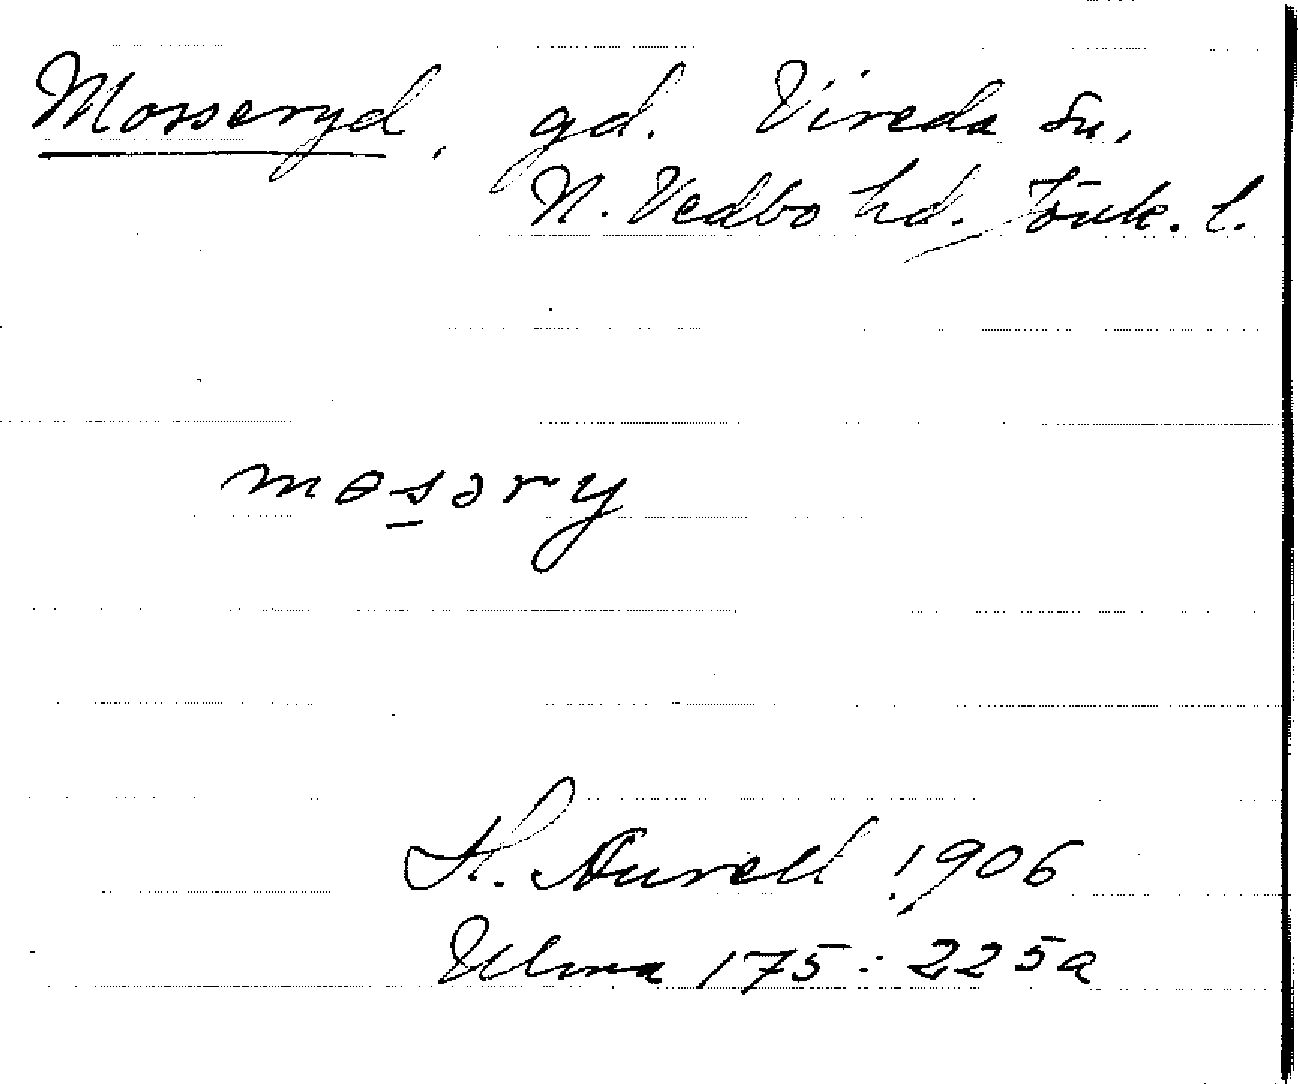 Mosseryd, gd. Vireda sn.
N. Vedbo hd. Jönk. l.
mɵs̲əry
H. Aurell 1906
Ulma 175: 225a